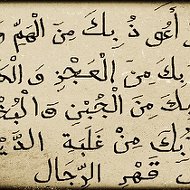 أَعُوذُ بِكَ مِنَ الْهَمِّ وَ
بِكَ مِنَ الْعَجْزِ وَ
بِكَ مِنَ الْجُبْنِ وَ
بِكَ مِنْ غَلَبَةِ
قَهْرِ الرِّجَالِ